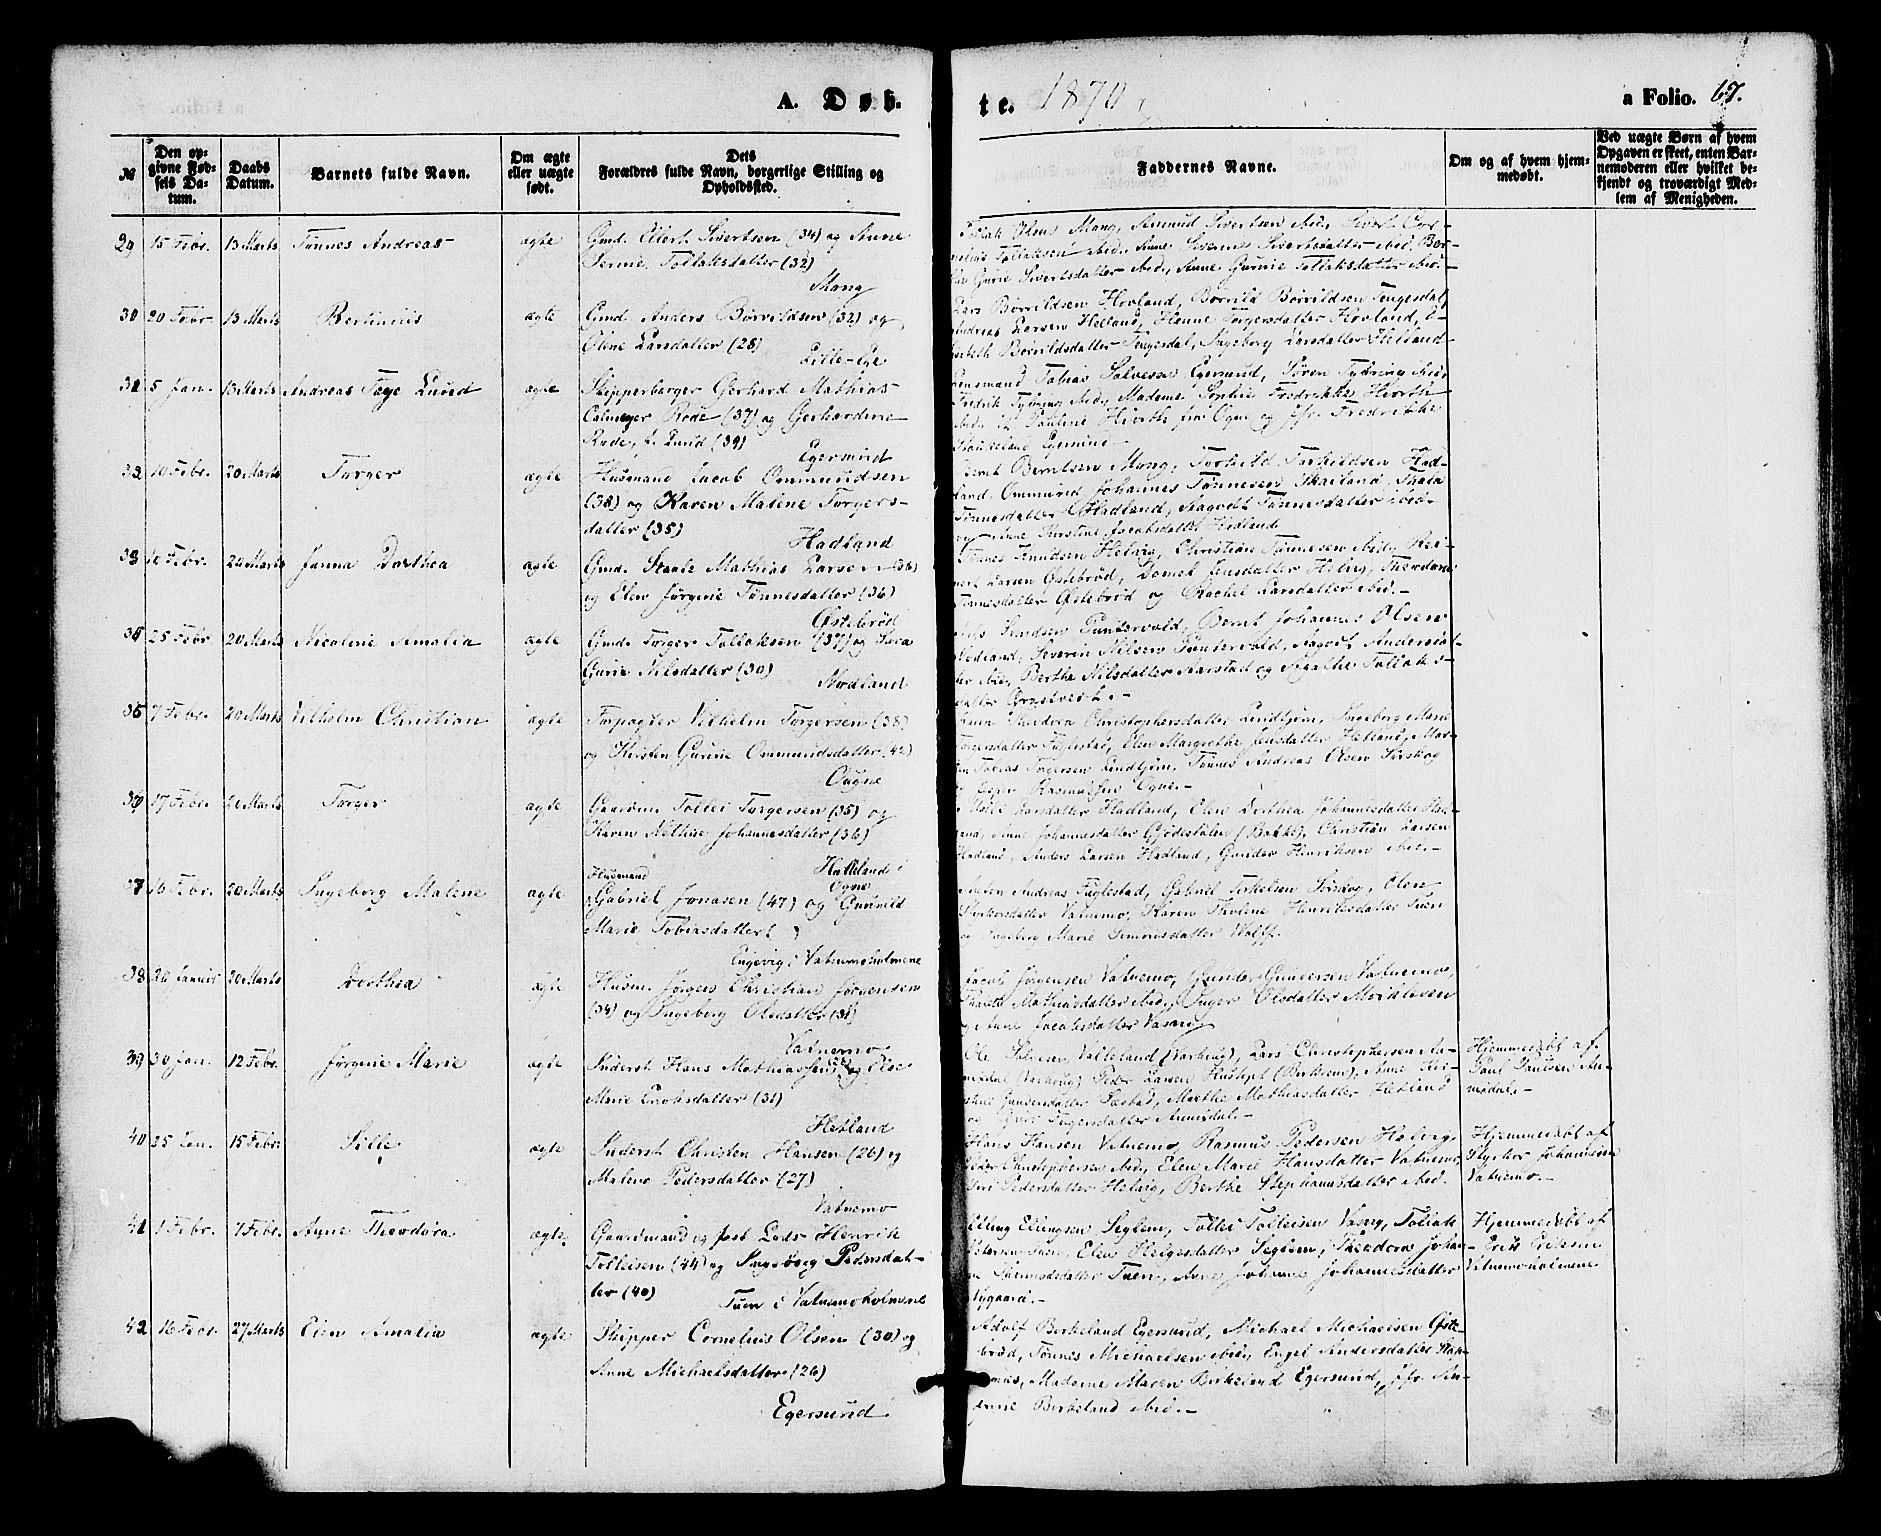 A. Døb-
te. 1870,
a Folio. 67.
№
Den op-
givne Fød-
sels Da-
tum.
Daabs
Datum.
Barnets fulde Navn.
Om ægte
eller uægte
født.
Dets
Forældres fulde Navn, borgerlige Stilling og
Opholdssted.
Faddernes Navne.
Om og af hvem hjem-
medøbt.
Ved uægte Børn af hvem
Opgaven er skeet, enten Bar-
nemoderen eller hvilket be-
kjendt og troværdigt Med-
lem af Menigheden.
29 15 Febr. 13 Marts Tønnes Andreas ægte Gmd. Eilert Sivertsen (34) og Anne
Serine Tollaksdatter (32)
Mong
Tollak Olsen Mong, Aamund Sivertsen ibid, Sivert Cor-
nelius Tollaksen ibid, Anne Severine Sivertsdatter ibid, Ber-
the Gurie Sivertsdatter ibid, Anne Gurine Tollaksdatter ibid.-
30 20 Febr 13 Marts Bertinius ægte Gmd Anders Børrildsen (32) og
Olene Larsdatter (28)
Lille-Ege
Lars Børrildsen Hovland, Børrild Børrildsen Tengesdal,
Andreas Larsen Helland, Hanne Torgersdatter Hovland, E-
lisabeth Børrildsdatter Tengesdal, Ingeborg Larsdatter Helland
31 5 Jan. 13 Marts Andreas Faye Lund ægte Skipperborger Gerhard Mathias
Calmeyer Rode (37) og Gerhardine
Rode, f. Lund (39)
Egersund
Lensmand Tobias Salvesen Egersund, Søren Tybring ibid,
Fredrik Tybring ibid, Madame Sophie Fredrikke Hiorth
ibid, Pauline Hiorth fra Ogne og Jfr. Fredrikke
Egersund.-
32 10 Febr. 20 Marts Torger ægte Husmand Jacob Ommundsen
(38) og Karen Malene Torgers-
datter (35)
Hadland
Bernt Berntsen Mong, Torkild Torkildsen Had-
land, Ommund Johannes Tønnesen Skailand, Thala
Tønnesdatter Hadland, Aagodt Tønnesdatter ibid
og Anne Kirstine Jacobsdatter Hadland
33 10 Febr. 20 Marts Janna Dorthea ægte Gmd. Staale Mathias Larsen (36)
og Elen Jørgine Tønnesdatter (36)
Østebrød
Tønnes Knudsen Helvig, Christian Tønnesen ibid, Rei-
nert Larsen Østebrød, Dorret Jensdatter Helvig, Theodine
Tønnesdatter Østebrød og Rachel Larsdatter ibid.-
34 25 Febr 20 Marts Nicoline Amalia ægte Gmd. Torger Tollaksen (37) og Sara
Gurie Nilsdatter (30)
Modland
Nils Puntervold, Bernt Johannes Olsen
Modland, Severin Nilsen Puntervold, Aagodt Andersdat-
ter ibid, Berthe Nilsdatter Aarstad og Agathe Tollaks-
datter.-
35 7 Febr. 20 Marts Vilhelm Christian ægte Forpagter Vilhelm Torgersen (38)
og Kirsten Gurine Ommundsdatter (42)
Ougne
Theodora Christophersdatter Lindtjørn, Ingeborg Marie
Torgersdatter Fuglestad, Elen Margrethe Jensdatter Helland, Mar-
tin Tobias Torgersen Lindtjørn, Tønnes Andreas Olsen Sirskog
og Rasmussen Ogne.-
36 17 Febr. 20 Marts Torger ægte Gaardm. Tollei Torgersen (35) og
Karen Nilline Johannesdatter (36)
Hadland i
Ogne
Larsdatter Hadland, Elen Dorthea Johannesdatter Had-
land, Anne Johannesdatter Gjedestølen (Bakke), Christian Larsen
Hadland, Anders Larsen Hadland, Gunder Henriksen ibid.-
37 16 Febr. 20 Marts Ingeborg Malene ægte Husmand
Gabriel Jonasen (47) og Gunnild
Marie Tobiasdatter ( )
Engevig i Vatnemoholmene
Andreas Fuglestad, Gabriel Torkelsen Sirskog, Elen
Styrkorsdatter Vatnemo, Karen Thorlene Henriksdatter Tuen
og Ingeborg Marie Simonsdatter Wolff.
38 26 Januar 20 Marts Dorthea ægte Husm. Jørgen Christian Jørgensen
(34) og Ingeborg Olsdatter (31)
Vatnemo
Jacob Jørgensen Vatnemo, Gunder Gundersen Vatnemo,
Mathiasdatter ibid, Inger Olsdatter
og Anne Jacobsdatter Vasvig
39 30 Jan. 12 Febr. Jørgine Marie ægte Inderst Hans Mathiassen og Else
Marie Enoksdatter (31)
Hetland
Ole Salvesen Valleland (Varhoug), Lars Christophersen An-
nisdal (Varhoug) Peder Larsen Hustoft (Birkrem), Anne Kir-
stine Gundersdatter Sæstad, Marthe Mathiasdatter Hetland
og Guri Torgersdatter Annisdal.-
Hjemmedøbt af
Poul Poulsen An-
nisdal.-
40 25 Jan. 15 Febr. Sille ægte Inderst Christen Hansen (26) og
Malene Pedersdatter (27)
Vatnemo
Hans Hansen Vatnemo, Rasmus Pedersen Helvig,
Peder Christophersen ibid, Elen Marie Hansdatter Vatnemo,
Siri Pedersdatter Helvig, Berthe Stephansdatter ibid.
Hjemmedøbt af
Styrkor Johannesen
Vatnemo.-
41 1 Febr. 7 Febr. Anne Theodora ægte Gaardmand og fast Lods Henrik
Tolleisen (44) og Ingeborg Pedersdat-
ter (40)
Tuen i Vatnemoholmene
Elling Ellingsen Seglem, Tollei Tolleisen Vasvig, Tollak
Petersen Tuen, Elen Helgesdatter Seglem, Theodora Johan-
ne Tuen, Anne Johanne Johannesdatter
Nygaard.-
Hjemmedøbt af
Erik Eriksen
Vatnemoholmene
42 16 Febr. 27 Marts Elen Amalia ægte Skipper Cornelius Olsen (30) og
Anne Michaelsdatter (26)
Egersund.
Adolf Birkeland Egersund, Michael Michaelsen Øste-
brød, Tønnes Michaelsen ibid, Engel Andersdatter Hap-
nes, Madame Maren Birkeland Egersund, Jfr. An-
dreine Birkeland ibid.-